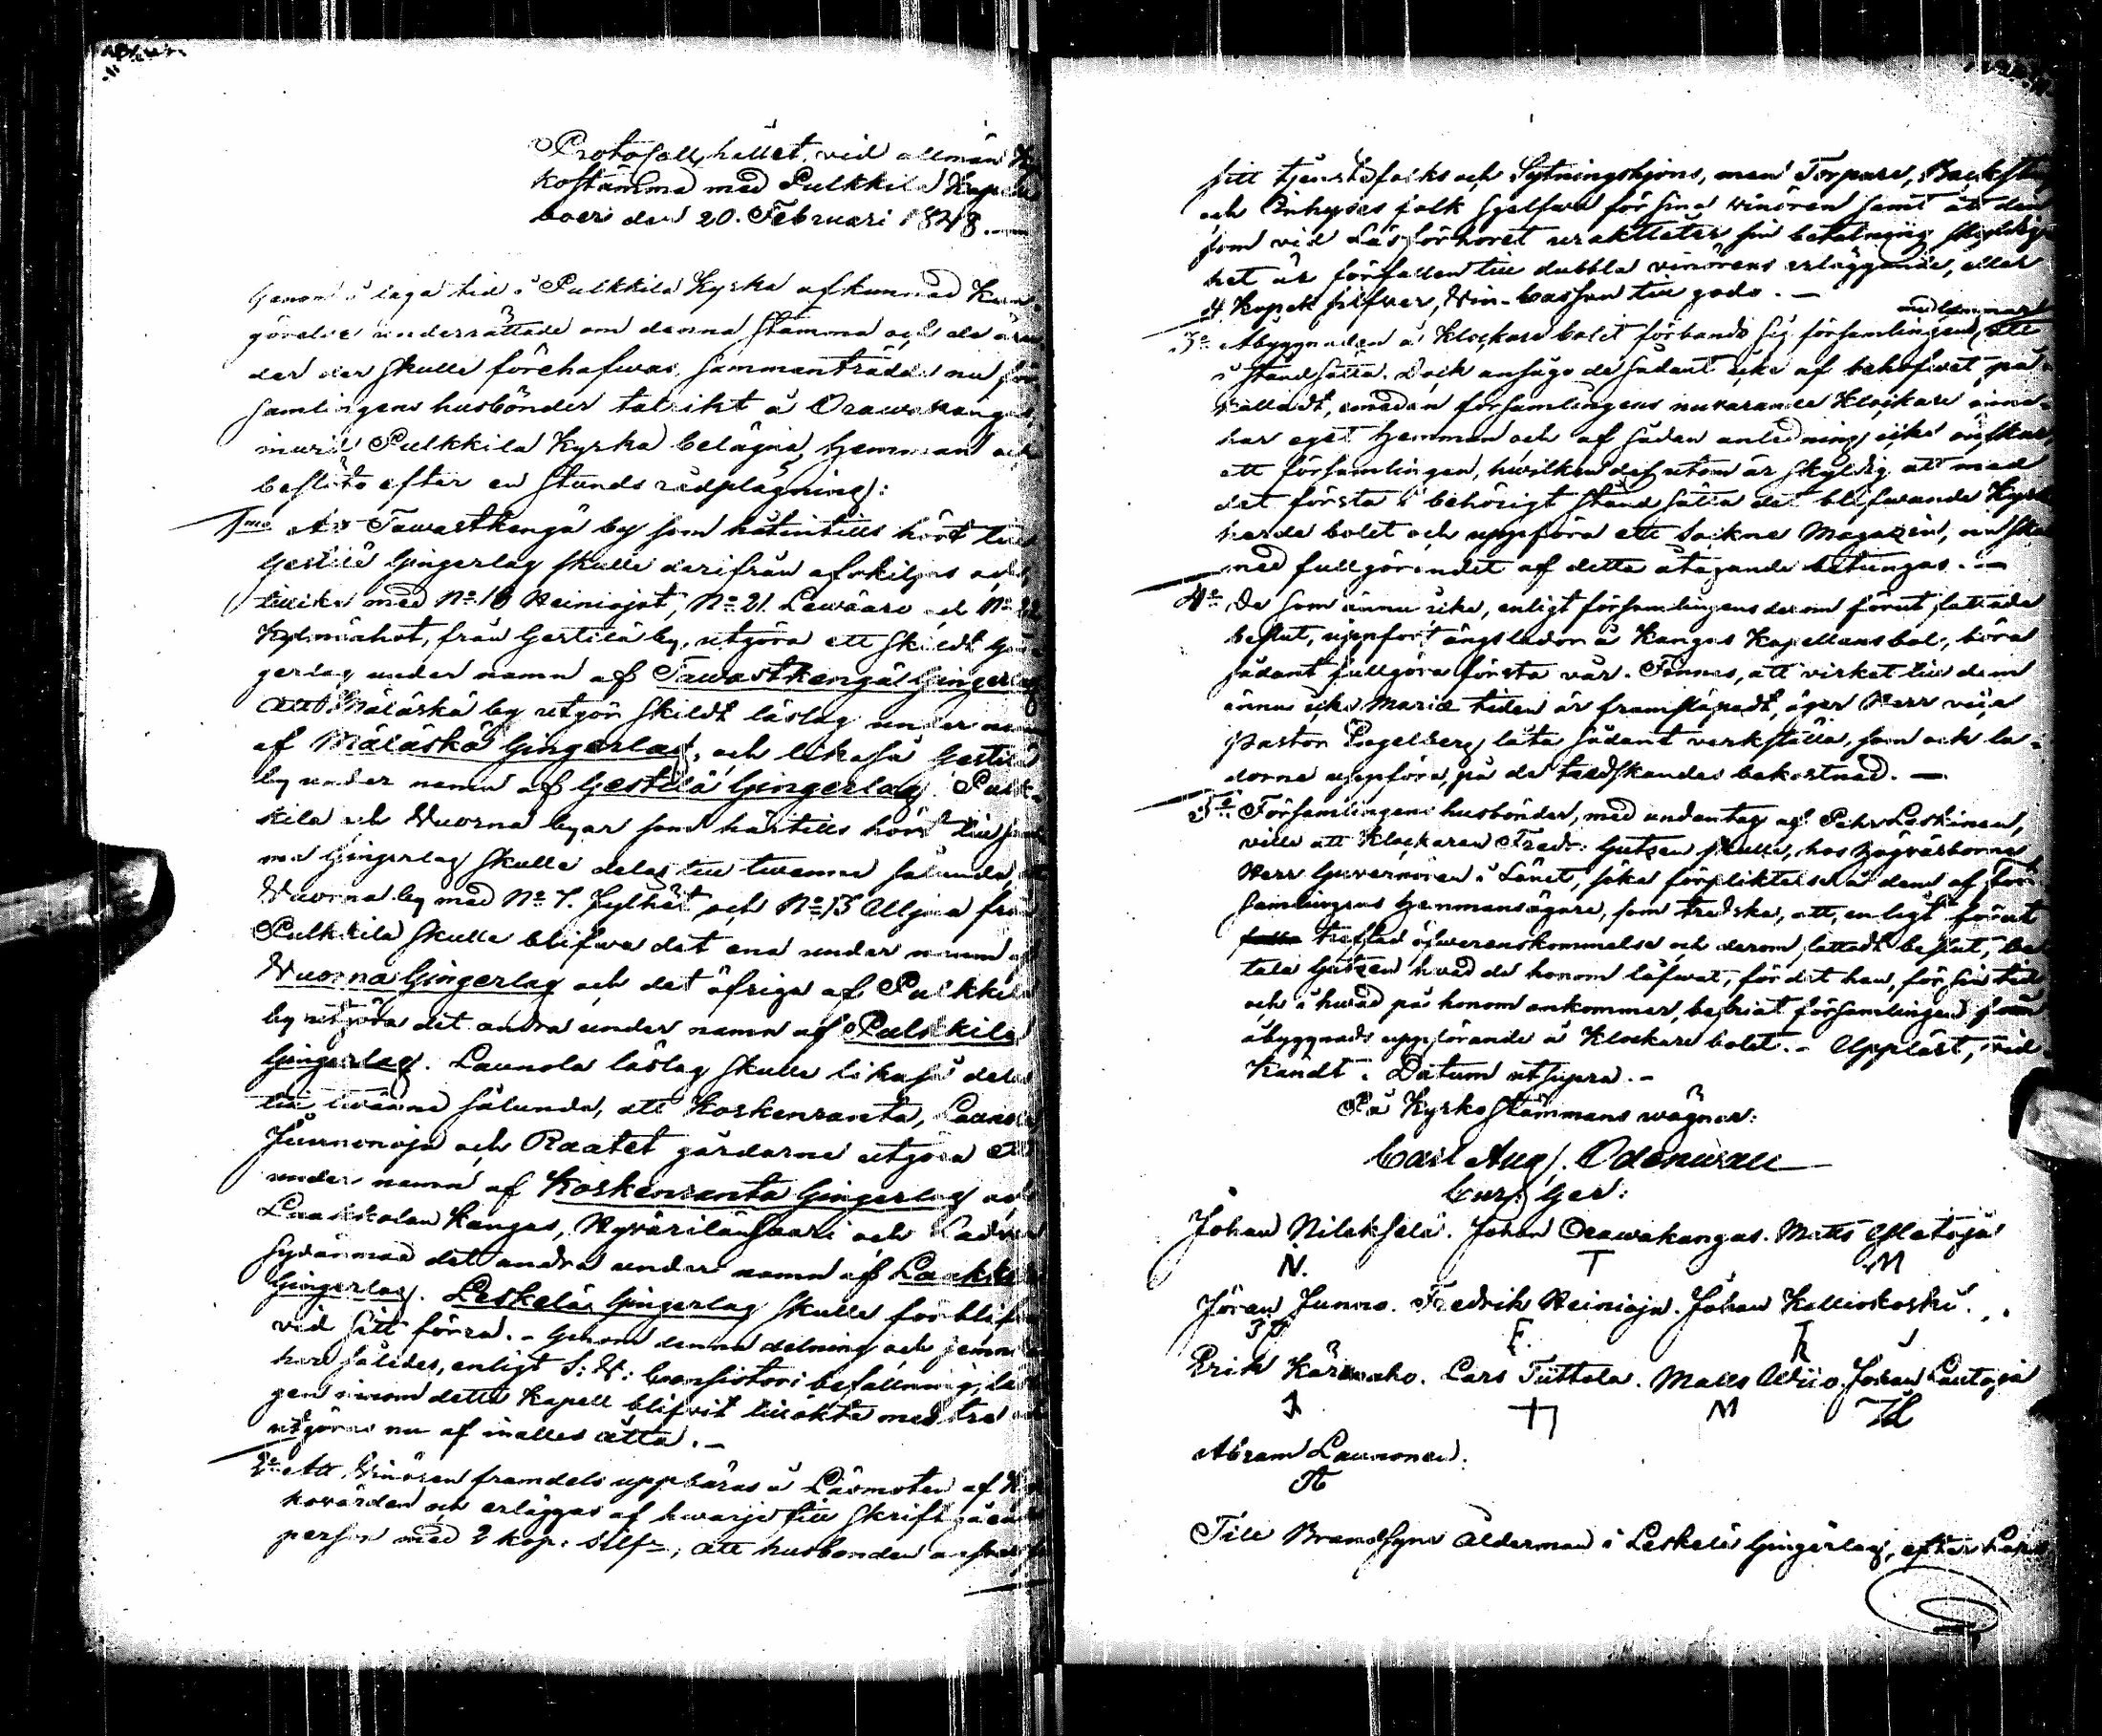 Protokoll, hållet vid allmän Ky
kostämma med Pulkkila Kapell
boer den 20. Februari 1848.
Genom i laga tid i Pulkkila Kyrka afkunnad Kun
görelse underrättade om denna Stämma och de ären
der der skulle förehafwas, sammanträdde nu för
samlingens husbönder talrikt å Orawakangas,
invid Pulkkila Kyrka belägna, hemman och
beslöto efter en stunds rådplägning:
1mo Att Tawastkengä by som hätintills hört till
Gestilä Gingerlag skulle derifrån afskiljas och
tillika med No 16 Heiniojat, No 21. Lewäare och No
Kylmähat, från Gestilä by, utgöra ett skildt Gin
gerlag under namn af Tawastkengä Gingerlag
Att Mäläskä by utgör skildt läslag under namn
af Mäläskä Gingerlag, och likaså Gestilä
by under namn af Gestilä Gingerlag. Pulk-
kila och Wuorna byar som härtills hört till sam
ma Gingerlag skulle delas till twenne sålunda, att
Wuorna by med No 7. Jylhät och No 13 Alljna från
Pulkkila skulle blifwa det ena under namn af
Wuorna Gingerlag och det öfriga af Pulkkila
by utgöra det andra under namn af Pulkkila
Gingerlag. Launola läslag skulle likaså delas
till twänne sålunda, att Koskenranta,
Junnonoja och Raatet gårdarne utgöra ett
under namn af Koskenranta Gingerlag och
Laakkolan Kangas, Hyvärilänsaari och
Sydänmaa det andra under namn af Laakkola
Gingerlag. Leskelä Gingerlag skulle förblifwa
vid sitt förra. - Genom denna delning och jemn
hare således, enligt S: W: Consistorii befallning, lä
gen inom detta Kapell blifvit tillökte med tre och
utgöras nu af inalles åtta. -
2o Att Winören framdeles uppbäras å Läsmöten af K
kovärden och erläggas af hwarje till Skrift gående
person med 2 kop. Silfr, att husbonden answarar för
sitt tjenstefolks och Sytningshjons, men Torpare, Backstu
och Inhyses folk sjelfwa för sina winören samt att den
som vid Läsförhöret uraktlåter sin betalnings skyldig
het är förfallen till dubbla vinörens erläggande, eller
4 Kopek silfver, Win-Cassan till godo. -
medlemmar
3o Åbyggnaden å Klockare bolet förbandt sig församlingens, att
i stånd sätta. Dock ansågo de sådant icke af behofwet på-
kalladt, emedan församlingens nuvarande Klockare inne-
har eget hemman och af sådan anledning icke önskar,
att församlingen, hwilken dessutom är skyldig att med
det första i behörigt stånd sätta det blifwande Kyrko
herde bolet och uppföra ett Sockne Magazin, nu ska
med fullgörandet af detta åtagande betungas. -
4o De som ännu icke, enligt församlingens derom förut fattade
beslut, uppfört ängslador å Kangas Kapellansbol, böra
sådant fullgöra första vår. Finnes, att virket till dem
ännu icke Mariæ tiden är framsläpadt, äger Herr vice
pastor Pegelberg låta sådant verkställa, som och la-
dorne uppföra, på de tredskandes bekostnad. -
5o Församlingens husbönder, med undantag af Pehr Leskinen,
ville att Klockaren Fredr: Gutzen skulle, hos högvälborne
Herr Guvernören i Länet, söka förpliktelse å dem af för-
samlingens hemmansägare, som tredska, att, enligt förut
träffad öfwerenskommelse och derom fattadt beslut, be
tala Gutzen hwad de honom låfwat, för det han, för sin tid
och i hwad på honom ankommer, befriat församlingen från
åbyggnads uppförande å Klockare bolet. - Uppläst, vid
kändt. Datum utsupra. -
På Kyrkostämmans wägnar:
Carl Aug. Odenwall
Cur: Ger:
Johan Nilekselä. Johan Orawakangas. Matts Yletoja
N. T M
Jöran Junno. Fredrik Heinioja. Johan Kalliokoski.
Erik Kärenaho. Lars Tiittola. Matts Wiio. Johan Lautoja
Abram Launonen.
Till Brandsyns Ålderman i Leskelä Gingerlag, efter